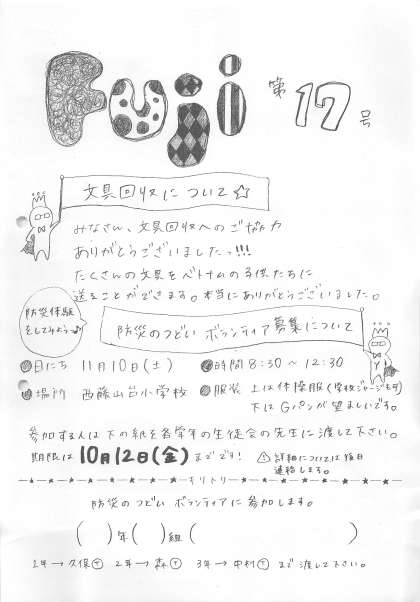 Fuji 第17号
文具回収について☆
みなさん、文具回収へのご協力
ありがとうございましたっ!!!
たくさんの文具をベトナムの子供たちに
送ることができます。本当にありがとうございました。
防災体験
をしてみよう♪
防災のつどい ボランティア募集について
●日にち 11月10日(土) ●時間 8:30〜12:30
●場所 西藤山台小学校 ●服装 上は体操服(学校ジャージも可)
下はGパンが望ましいです。
参加する人は下の紙を各学年の生徒会の先生に渡して下さい。
期限は10月12日(金)までです! 詳細については後日
連絡します。
キリトリ
防災のつどい ボランティアに参加します。
( )年( )組( )
1年→久保㋢ 2年→森㋢ 3年→中村㋢ まで渡して下さい。